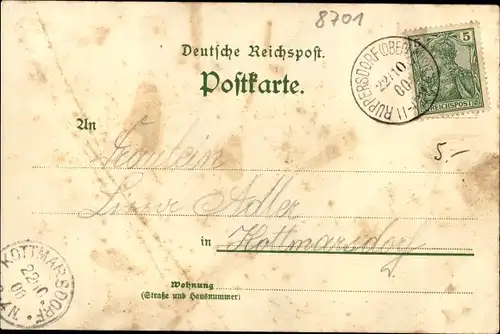 8701
Deutsche Reichspost.
Postkarte.
5
REICHSPOST
RUPPERSDORF (OBER
22/10
00
5.-
An
Fräulein
Adler
in Kottmarsdorf
Wohnung
(Straße und Hausnummer)
KOTTMARSDORF
22/10
00